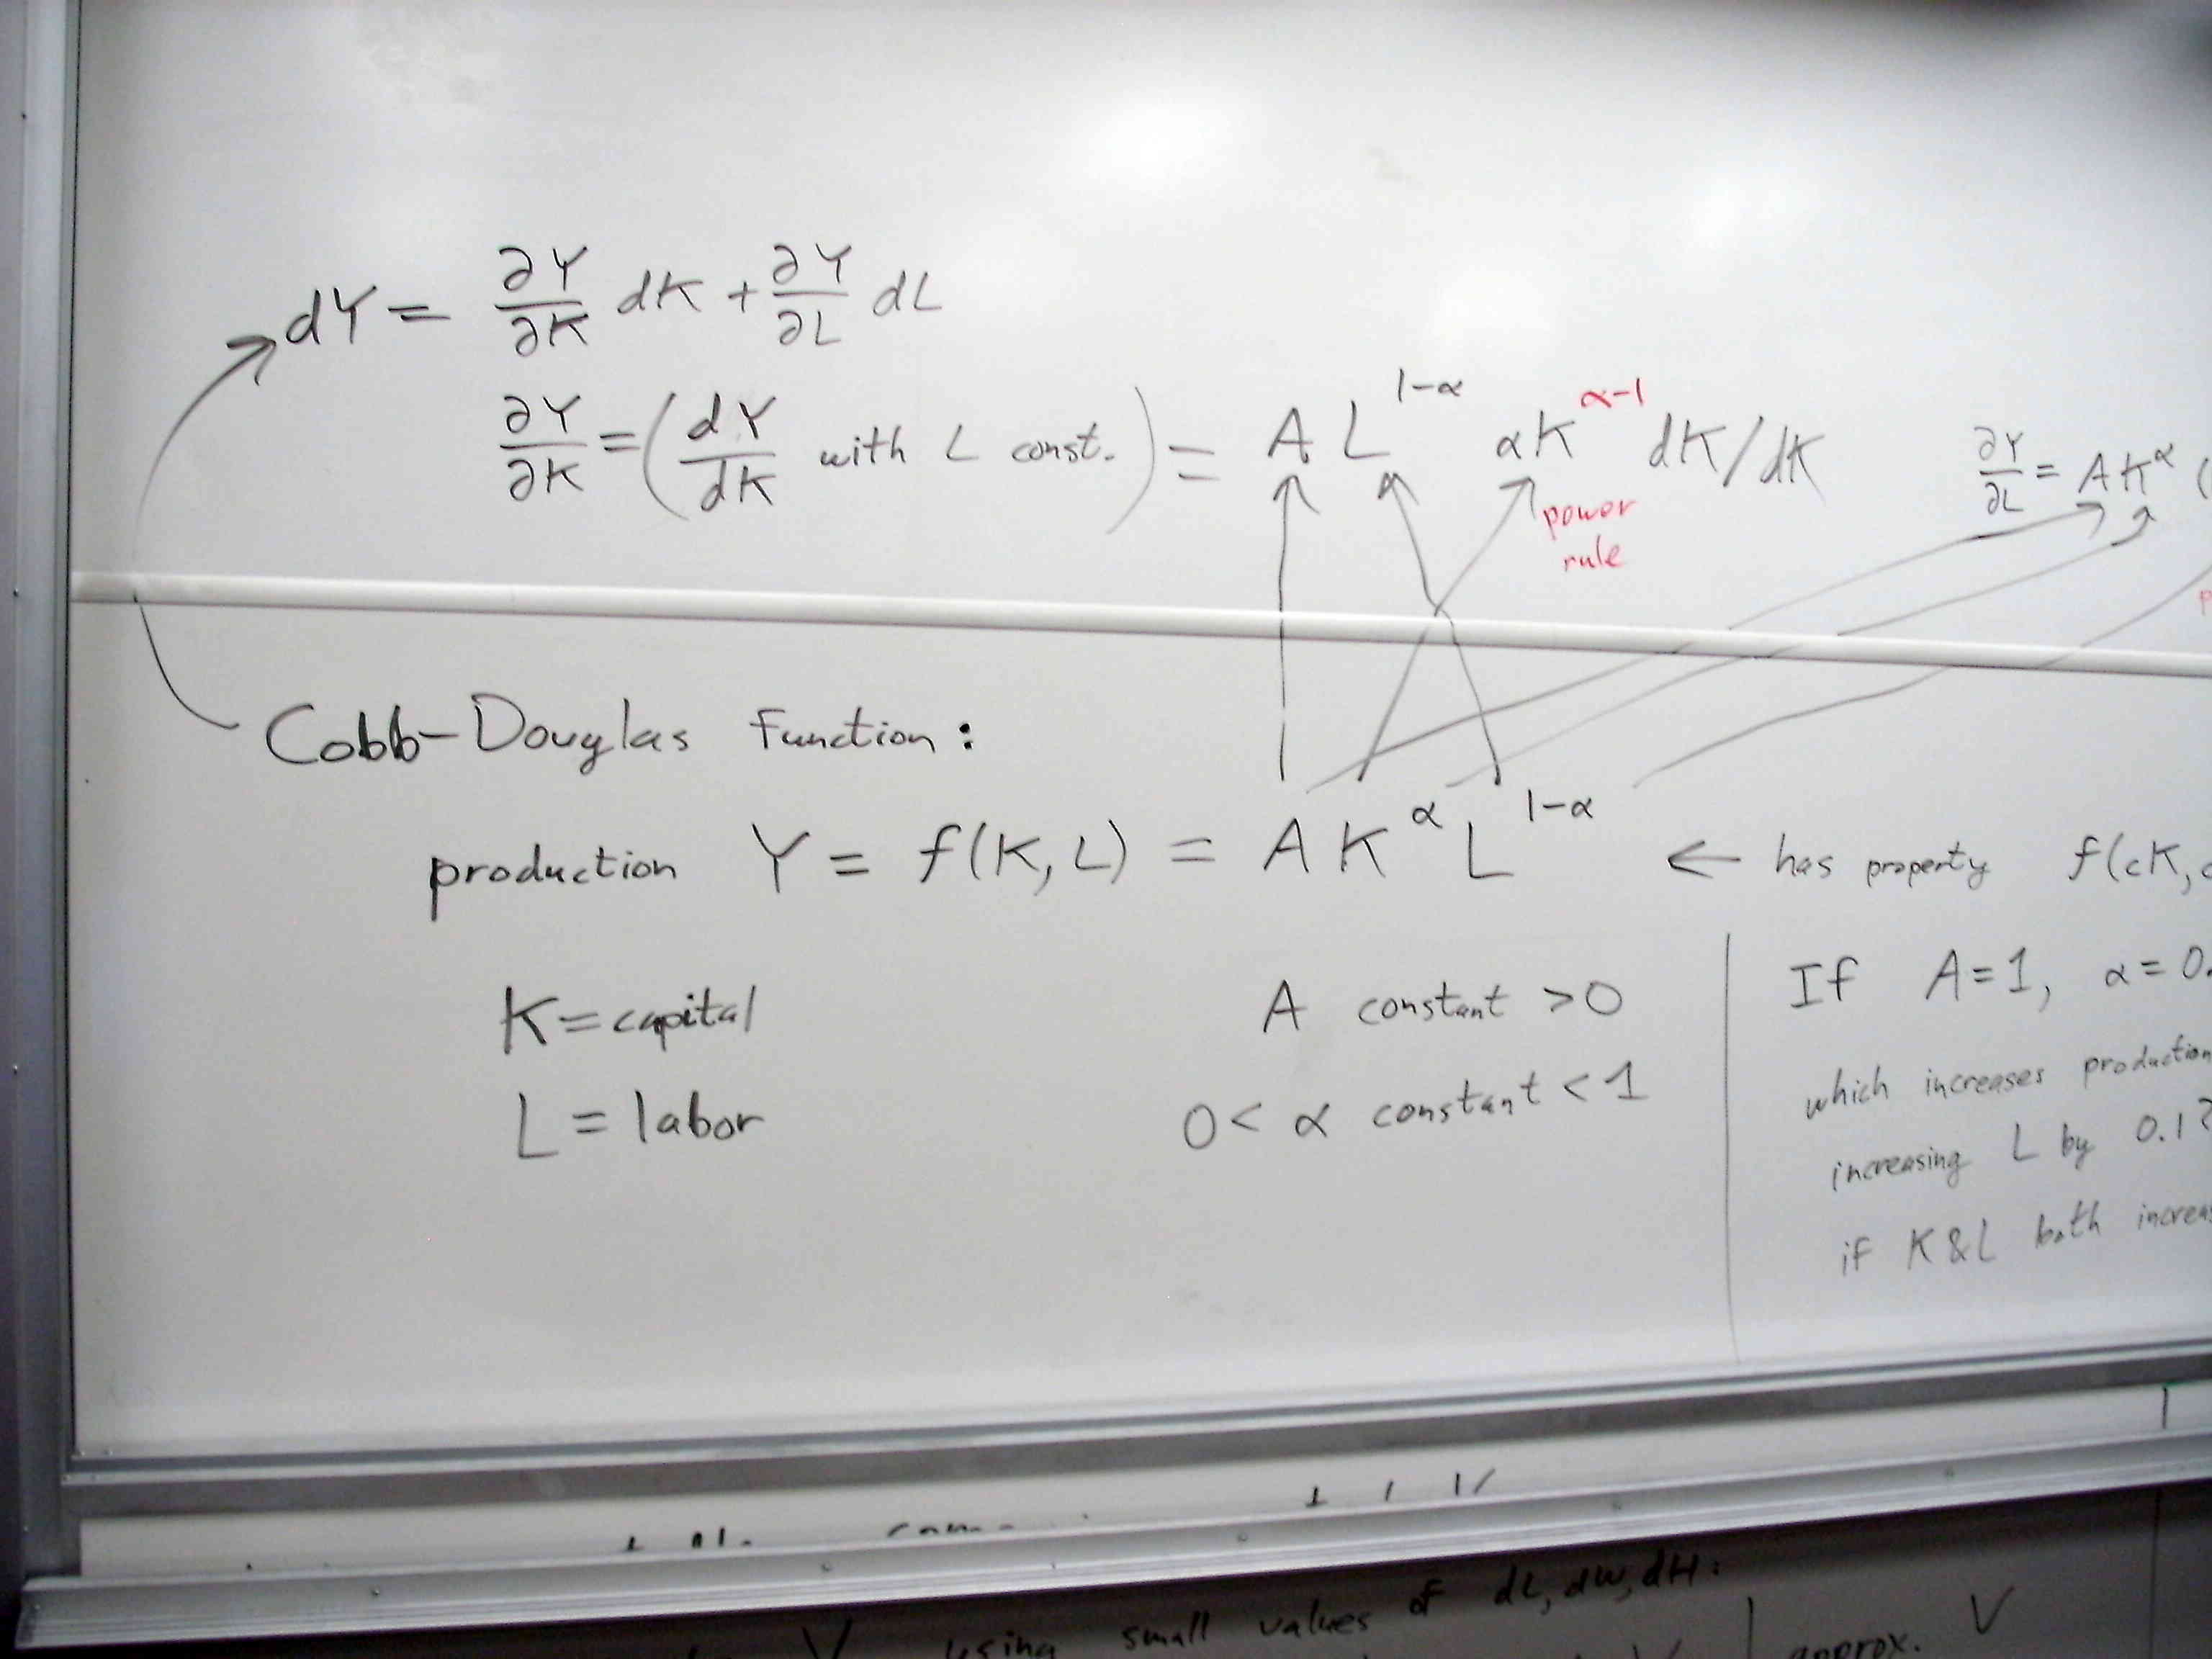 dY = ∂Y/∂K dK + ∂Y/∂L dL
∂Y/∂K = (dY/dK with L const.) = A L^(1-α) αK^(α-1) dK/dK
power
rule
∂Y/∂L = A K^α (
Cobb-Douglas Function:
production Y = f(K, L) = A K^α L^(1-α) ← has property f(cK,
K = capital
L = labor
A constant > 0
0 < α constant < 1
If A = 1, α = 0.
which increases production
increasing L by 0.1
if K & L both
using small values of dL, dW, dH:
V
approx. V